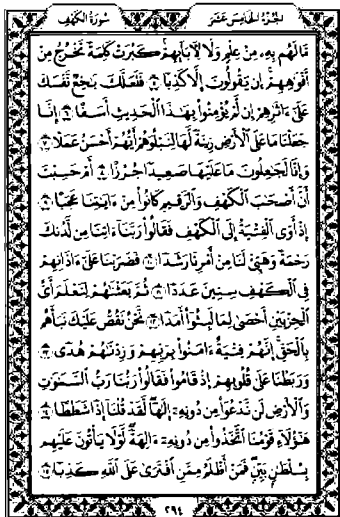 سُورَةُ الكَهْفِ
الجُزْءُ الخَامِسَ عَشَرَ
مَّا لَهُم بِهِۦ مِنْ عِلْمٍ وَلَا لِـَٔابَآئِهِمْ كَبُرَتْ كَلِمَةً تَخْرُجُ مِنْ
أَفْوَٰهِهِمْ إِن يَقُولُونَ إِلَّا كَذِبًا ۝٥ فَلَعَلَّكَ بَٰخِعٌ نَّفْسَكَ
عَلَىٰٓ ءَاثَٰرِهِمْ إِن لَّمْ يُؤْمِنُوا۟ بِهَٰذَا ٱلْحَدِيثِ أَسَفًا ۝٦ إِنَّا
جَعَلْنَا مَا عَلَى ٱلْأَرْضِ زِينَةً لَّهَا لِنَبْلُوَهُمْ أَيُّهُمْ أَحْسَنُ عَمَلًا ۝٧
وَإِنَّا لَجَٰعِلُونَ مَا عَلَيْهَا صَعِيدًا جُرُزًا ۝٨ أَمْ حَسِبْتَ
أَنَّ أَصْحَٰبَ ٱلْكَهْفِ وَٱلرَّقِيمِ كَانُوا۟ مِنْ ءَايَٰتِنَا عَجَبًا ۝٩
إِذْ أَوَى ٱلْفِتْيَةُ إِلَى ٱلْكَهْفِ فَقَالُوا۟ رَبَّنَآ ءَاتِنَا مِن لَّدُنكَ
رَحْمَةً وَهَيِّئْ لَنَا مِنْ أَمْرِنَا رَشَدًا ۝١٠ فَضَرَبْنَا عَلَىٰٓ ءَاذَانِهِمْ
فِى ٱلْكَهْفِ سِنِينَ عَدَدًا ۝١١ ثُمَّ بَعَثْنَٰهُمْ لِنَعْلَمَ أَىُّ
ٱلْحِزْبَيْنِ أَحْصَىٰ لِمَا لَبِثُوٓا۟ أَمَدًا ۝١٢ نَّحْنُ نَقُصُّ عَلَيْكَ نَبَأَهُم
بِٱلْحَقِّ إِنَّهُمْ فِتْيَةٌ ءَامَنُوا۟ بِرَبِّهِمْ وَزِدْنَٰهُمْ هُدًى ۝١٣
وَرَبَطْنَا عَلَىٰ قُلُوبِهِمْ إِذْ قَامُوا۟ فَقَالُوا۟ رَبُّنَا رَبُّ ٱلسَّمَٰوَٰتِ
وَٱلْأَرْضِ لَن نَّدْعُوَا۟ مِن دُونِهِۦٓ إِلَٰهًا لَّقَدْ قُلْنَآ إِذًا شَطَطًا ۝١٤
هَٰٓؤُلَآءِ قَوْمُنَا ٱتَّخَذُوا۟ مِن دُونِهِۦٓ ءَالِهَةً لَّوْلَا يَأْتُونَ عَلَيْهِم
بِسُلْطَٰنٍۭ بَيِّنٍ فَمَنْ أَظْلَمُ مِمَّنِ ٱفْتَرَىٰ عَلَى ٱللَّهِ كَذِبًا ۝١٥
٢٩٤